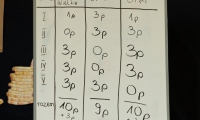 I 1p 3p 1p
II 0p 3p 3p
III 3p 0p 3p
IV 3p 0p 3p
V 3p 3p 0p
razem 10p 9p 10p
+3p